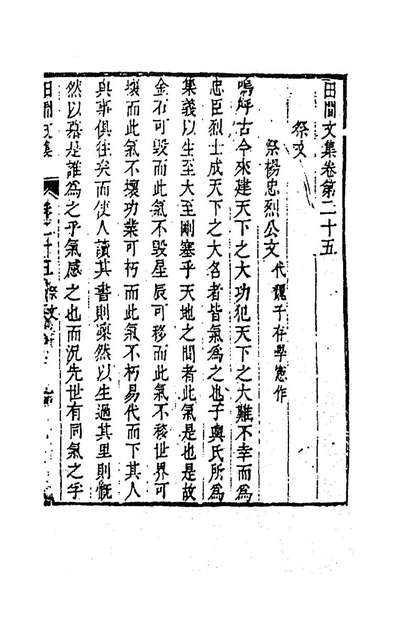 田間文集卷第二十五
祭文
祭楊忠烈公文代魏子存學憲作
嗚呼古今來建天下之大功犯天下之大難不幸而為
忠臣烈士成天下之大名者皆氣為之也子輿氏所為
集義以生至大至剛塞乎天地之間者此氣是也是故
金石可毀而此氣不毀星辰可移而此氣不移世界可
壞而此氣不壞功業可朽而此氣不朽易代而下其人
與事俱往矣而使人讀其書則藥然以生過其里則慨
然以慕是誰為之乎氣感之也而況先世有同氣之乎
田間文集
卷之二十五 祭文